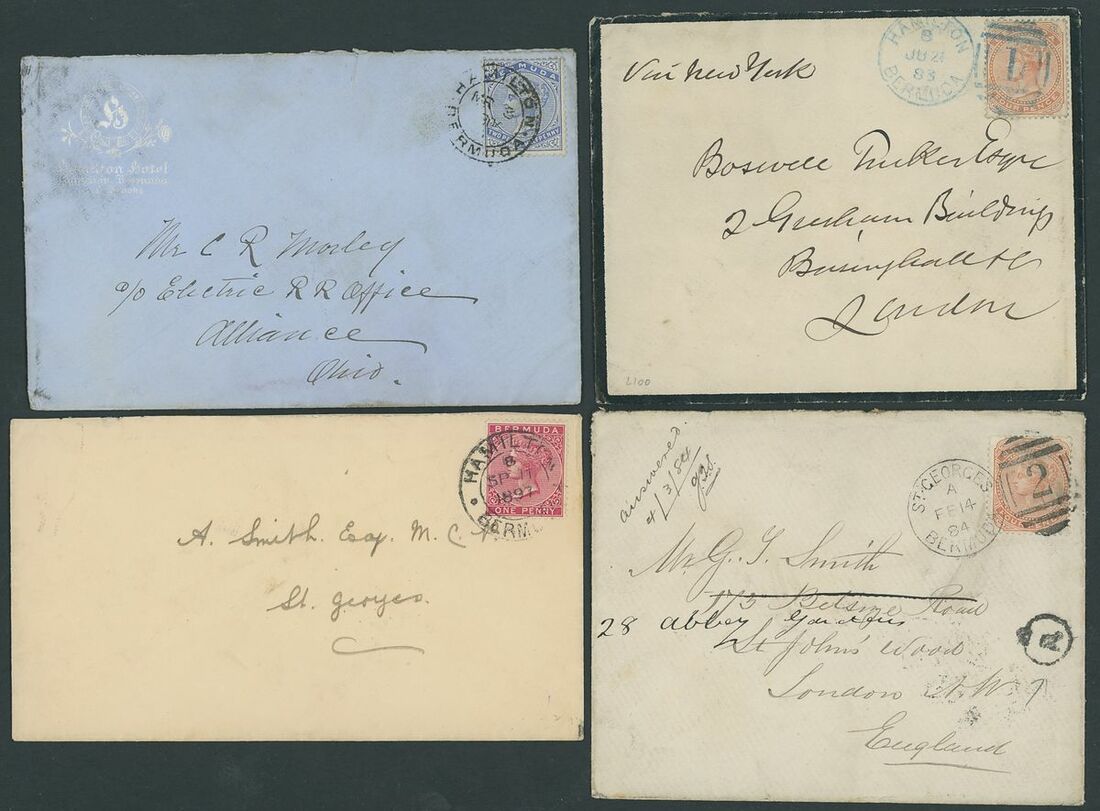 Hamilton Hotel
BERMUDA
HAMILTON
BERMUDA
Mr C R Morley
c/o Electric R R Office
Alliance
Ohio.
Via New York
HAMILTON
B
83
BERMUDA
1
Boswell Tucker Esqre
2 Gresham Buildings
Basinghall St
London
£100
BERMUDA
ONE PENNY
HAMILTON
B
SP 11
1897
BERMU
A. Smith. Esq. M. C. P.
St. Georges.
answered
ST. GEORGES
A
FE 14
84
BERMUDA
2
Mr G. J. Smith
173 Belsize Road
28 abbey Gardens
St John's Wood
London N.W.
England
R